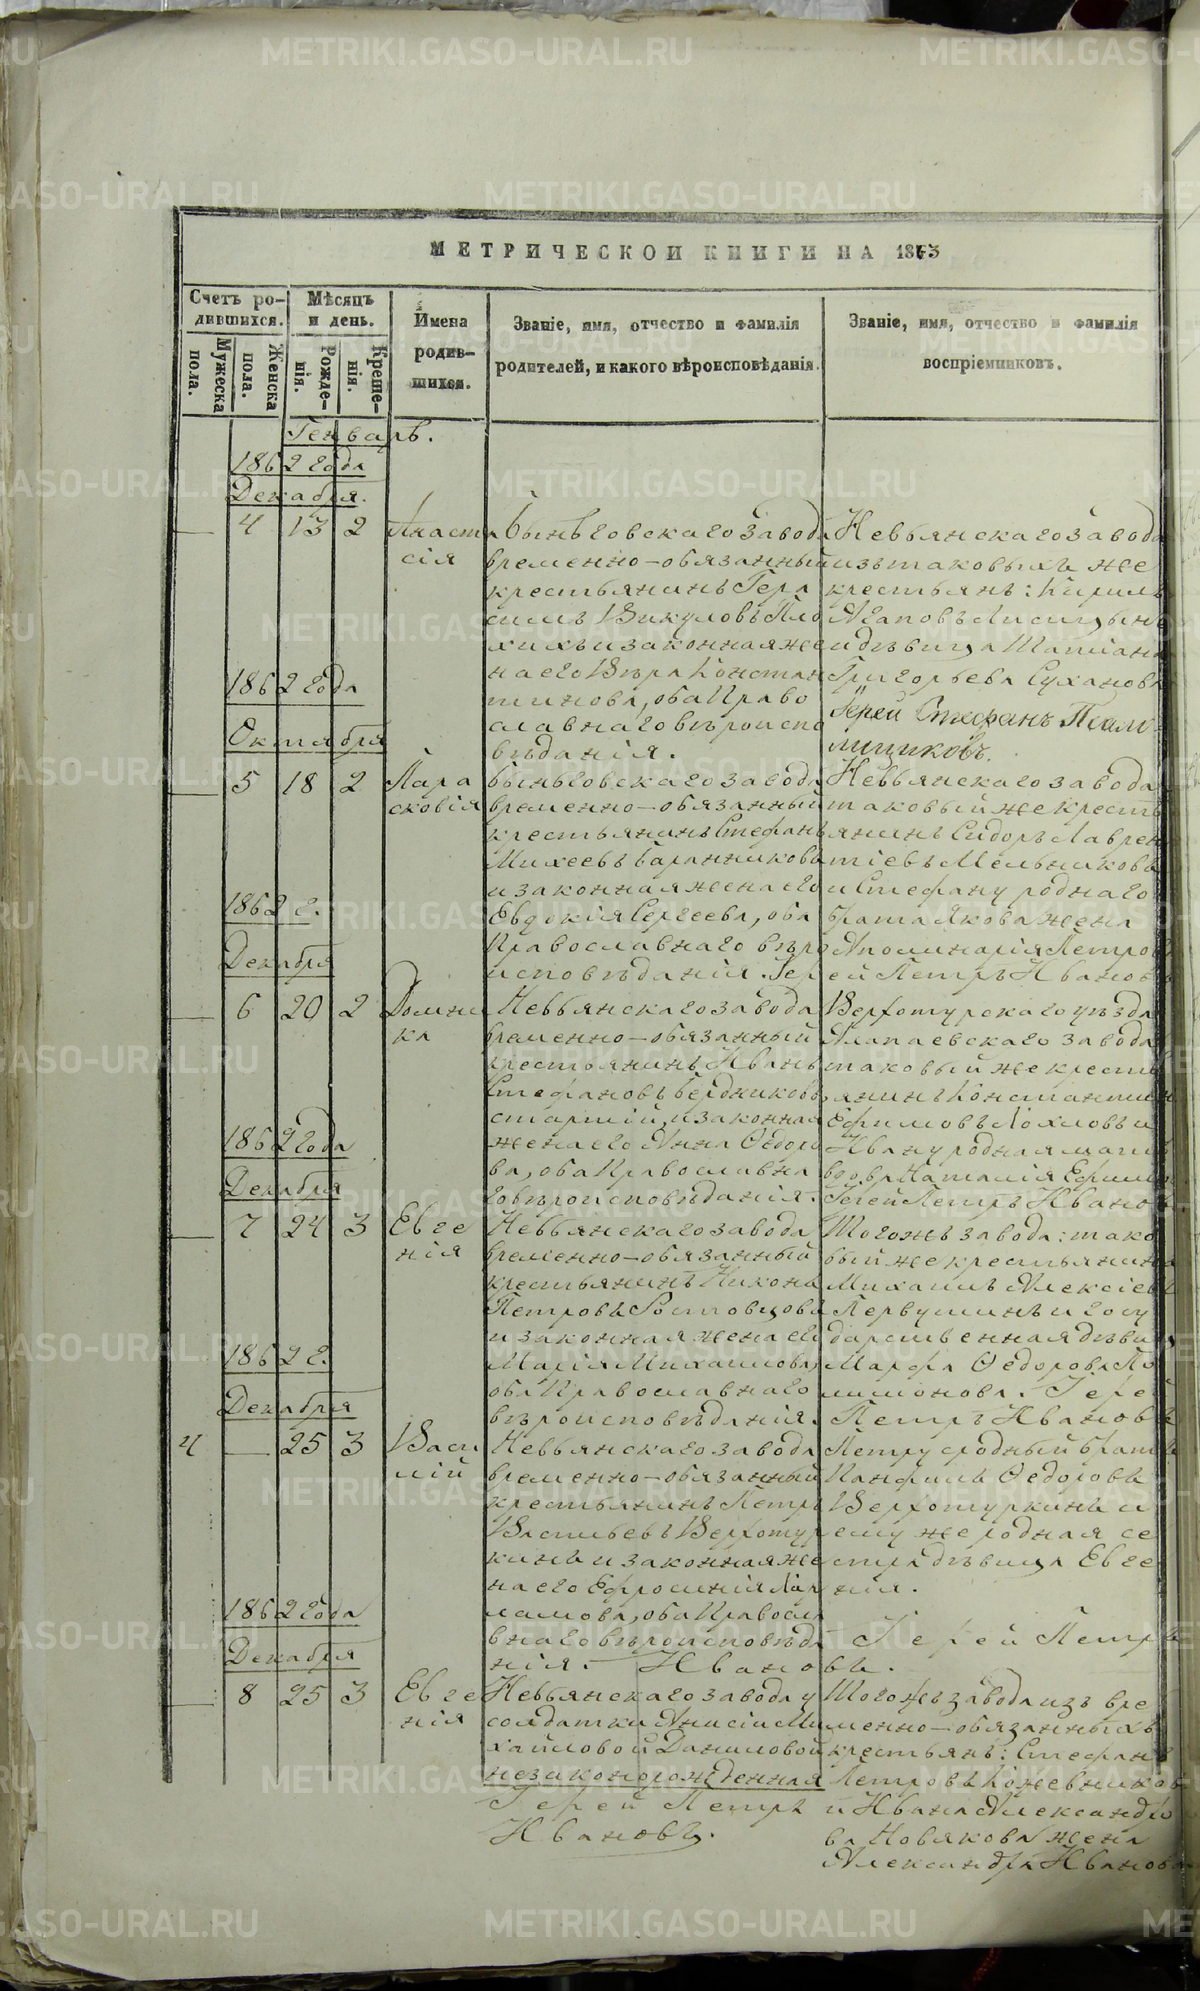 МЕТРИЧЕСКОЙ КНИГИ НА 1863
Счетъ ро-
дившихся.
Мужеска
пола.
Женска
пола.
Мѣсяцъ
и день.
Рожде-
нія.
Креще-
нія.
Имена
родив-
шихся.
Званіе, имя, отчество и фамилія
родителей, и какого вѣроисповѣданія.
Званіе, имя, отчество и фамилія
воспріемниковъ.
Генварь.
1862 года
Декабря.
4 13 2
Анаста
сія
Быньговскаго завода
временно-обязанный
крестьянинъ Гера
симъ Викуловъ Пло
хихъ и законная же
на его Вѣра Констан
тинова, оба Право
славнаго вѣроиспо
вѣданія.
Невьянскаго завода
изъ таковыхъ же
крестьянъ: Кирилъ
Агаповъ Лисицынъ
и дѣвица Татіана
Григорьева Суханова
Іерей Стефанъ
1862 года
Октября
5 18 2
Пара
сковія
Быньговскаго завода
временно-обязанный
крестьянинъ Стефанъ
Михеевъ Баранниковъ
и законная жена его
Евдокія Сергеева, оба
Православнаго вѣро
исповѣданія.
Невьянскаго завода
таковый же кресть
янинъ Сидоръ Лаврен
тіевъ Мельниковъ
и Стефану роднаго
брата Якова жена
Аполинарія Петрова
Іерей Петръ Ивановъ
1862 г.
Декабря
6 20 2
Домни
ка
Невьянскаго завода
временно-обязанный
крестьянинъ Иванъ
Стефановъ Бердниковъ
старшій, и законная
жена его Анна Ѳедоро
ва, оба Православна
го вѣроисповѣданія.
Верхотурскаго уѣзда
Алапаевскаго завода
таковый же кресть
янинъ Константинъ
Ефимовъ и
Ивану родная мать
вдова Наталія Ефим
Іерей Петръ Ивановъ
1862 года
Декабря
7 24 3
Евге
нія
Невьянскаго завода
временно-обязанный
крестьянинъ Никона
Петровъ Ростовцовъ
и законная жена его
Марія Михаилова,
оба Православнаго
вѣроисповѣданія.
Тогожъ завода: тако
вый же крестьянинъ
Михаилъ Алексіевъ
Первушинъ и госу
дарственная дѣвица
Марфа Ѳедорова
Іерей
Петръ Ивановъ
1862 г.
Декабря
4 — 25 3
Васи
лій
Невьянскаго завода
временно-обязанный
крестьянинъ Петръ
Васильевъ Верхотур
кинъ и законная же
на его Ефросинія
оба Правосла
внаго вѣроисповѣда
нія.
Петру сродный братъ
Панфилъ Ѳедоровъ
Верхотуркинъ и
ему же родная се
стра дѣвица Евге
нія.
Іерей Петръ
Ивановъ.
1862 года
Декабря
8 25 3
Евге
нія
Невьянскаго завода у
солдатки Анисіи Ми
хайловой Даниловой
незаконорожденная
Іерей Петръ
Ивановъ.
Тогожъ завода изъ вре
менно-обязанныхъ
крестьянъ: Стефанъ
Петровъ Кожевниковъ
и Ивана Александро
ва Новякова жена
Александра Иванова
METRIKI.GASO-URAL.RU